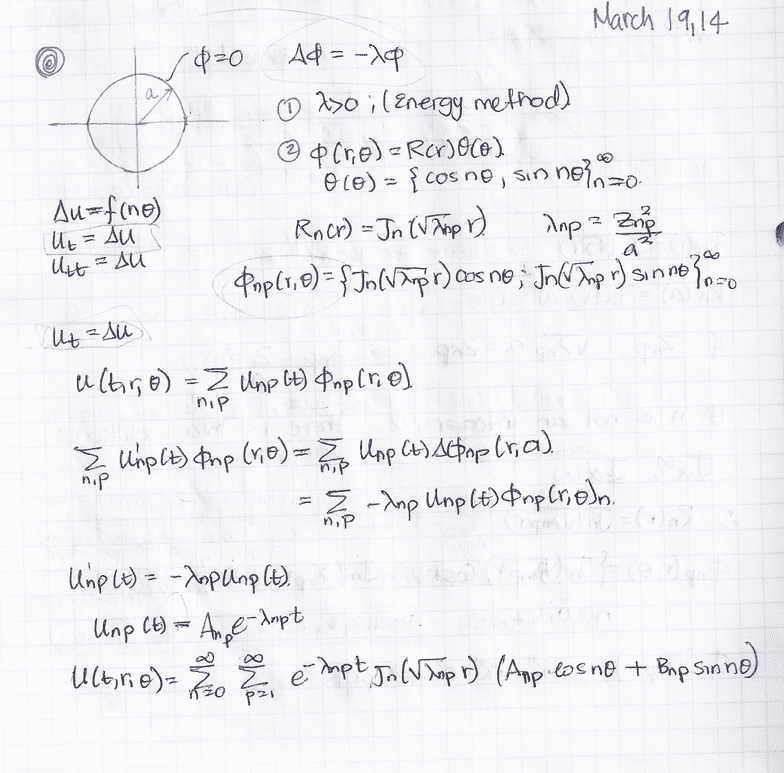 March 19,14
ϕ=0 Δϕ = -λϕ
a
① λ>0 ; (Energy method)
② ϕ(r,θ) = R(r)Θ(θ).
Θ(θ) = {cos nθ, sin nθ}_{n=0}^∞.
Δu=f(nθ)
u_t = Δu
u_tt = Δu
R_n(r) = J_n(√λ_np r) λ_np = z_np^2 / a^2
ϕ_np(r,θ) = {J_n(√λ_np r) cos nθ, J_n(√λ_np r) sin nθ}_{n=0}^∞
u_t = Δu
u(t,r,θ) = Σ_{n,p} u_np(t) ϕ_np(r,θ).
Σ_{n,p} u'_np(t) ϕ_np(r,θ) = Σ_{n,p} u_np(t) Δϕ_np(r,a).
= Σ_{n,p} -λ_np u_np(t) ϕ_np(r,θ)n.
u'_np(t) = -λ_np u_np(t).
u_np(t) = A_np e^{-λ_np t}
u(t,r,θ) = Σ_{n=0}^∞ Σ_{p=1}^∞ e^{-λ_np t} J_n(√λ_np r) (A_np cos nθ + B_np sin nθ)